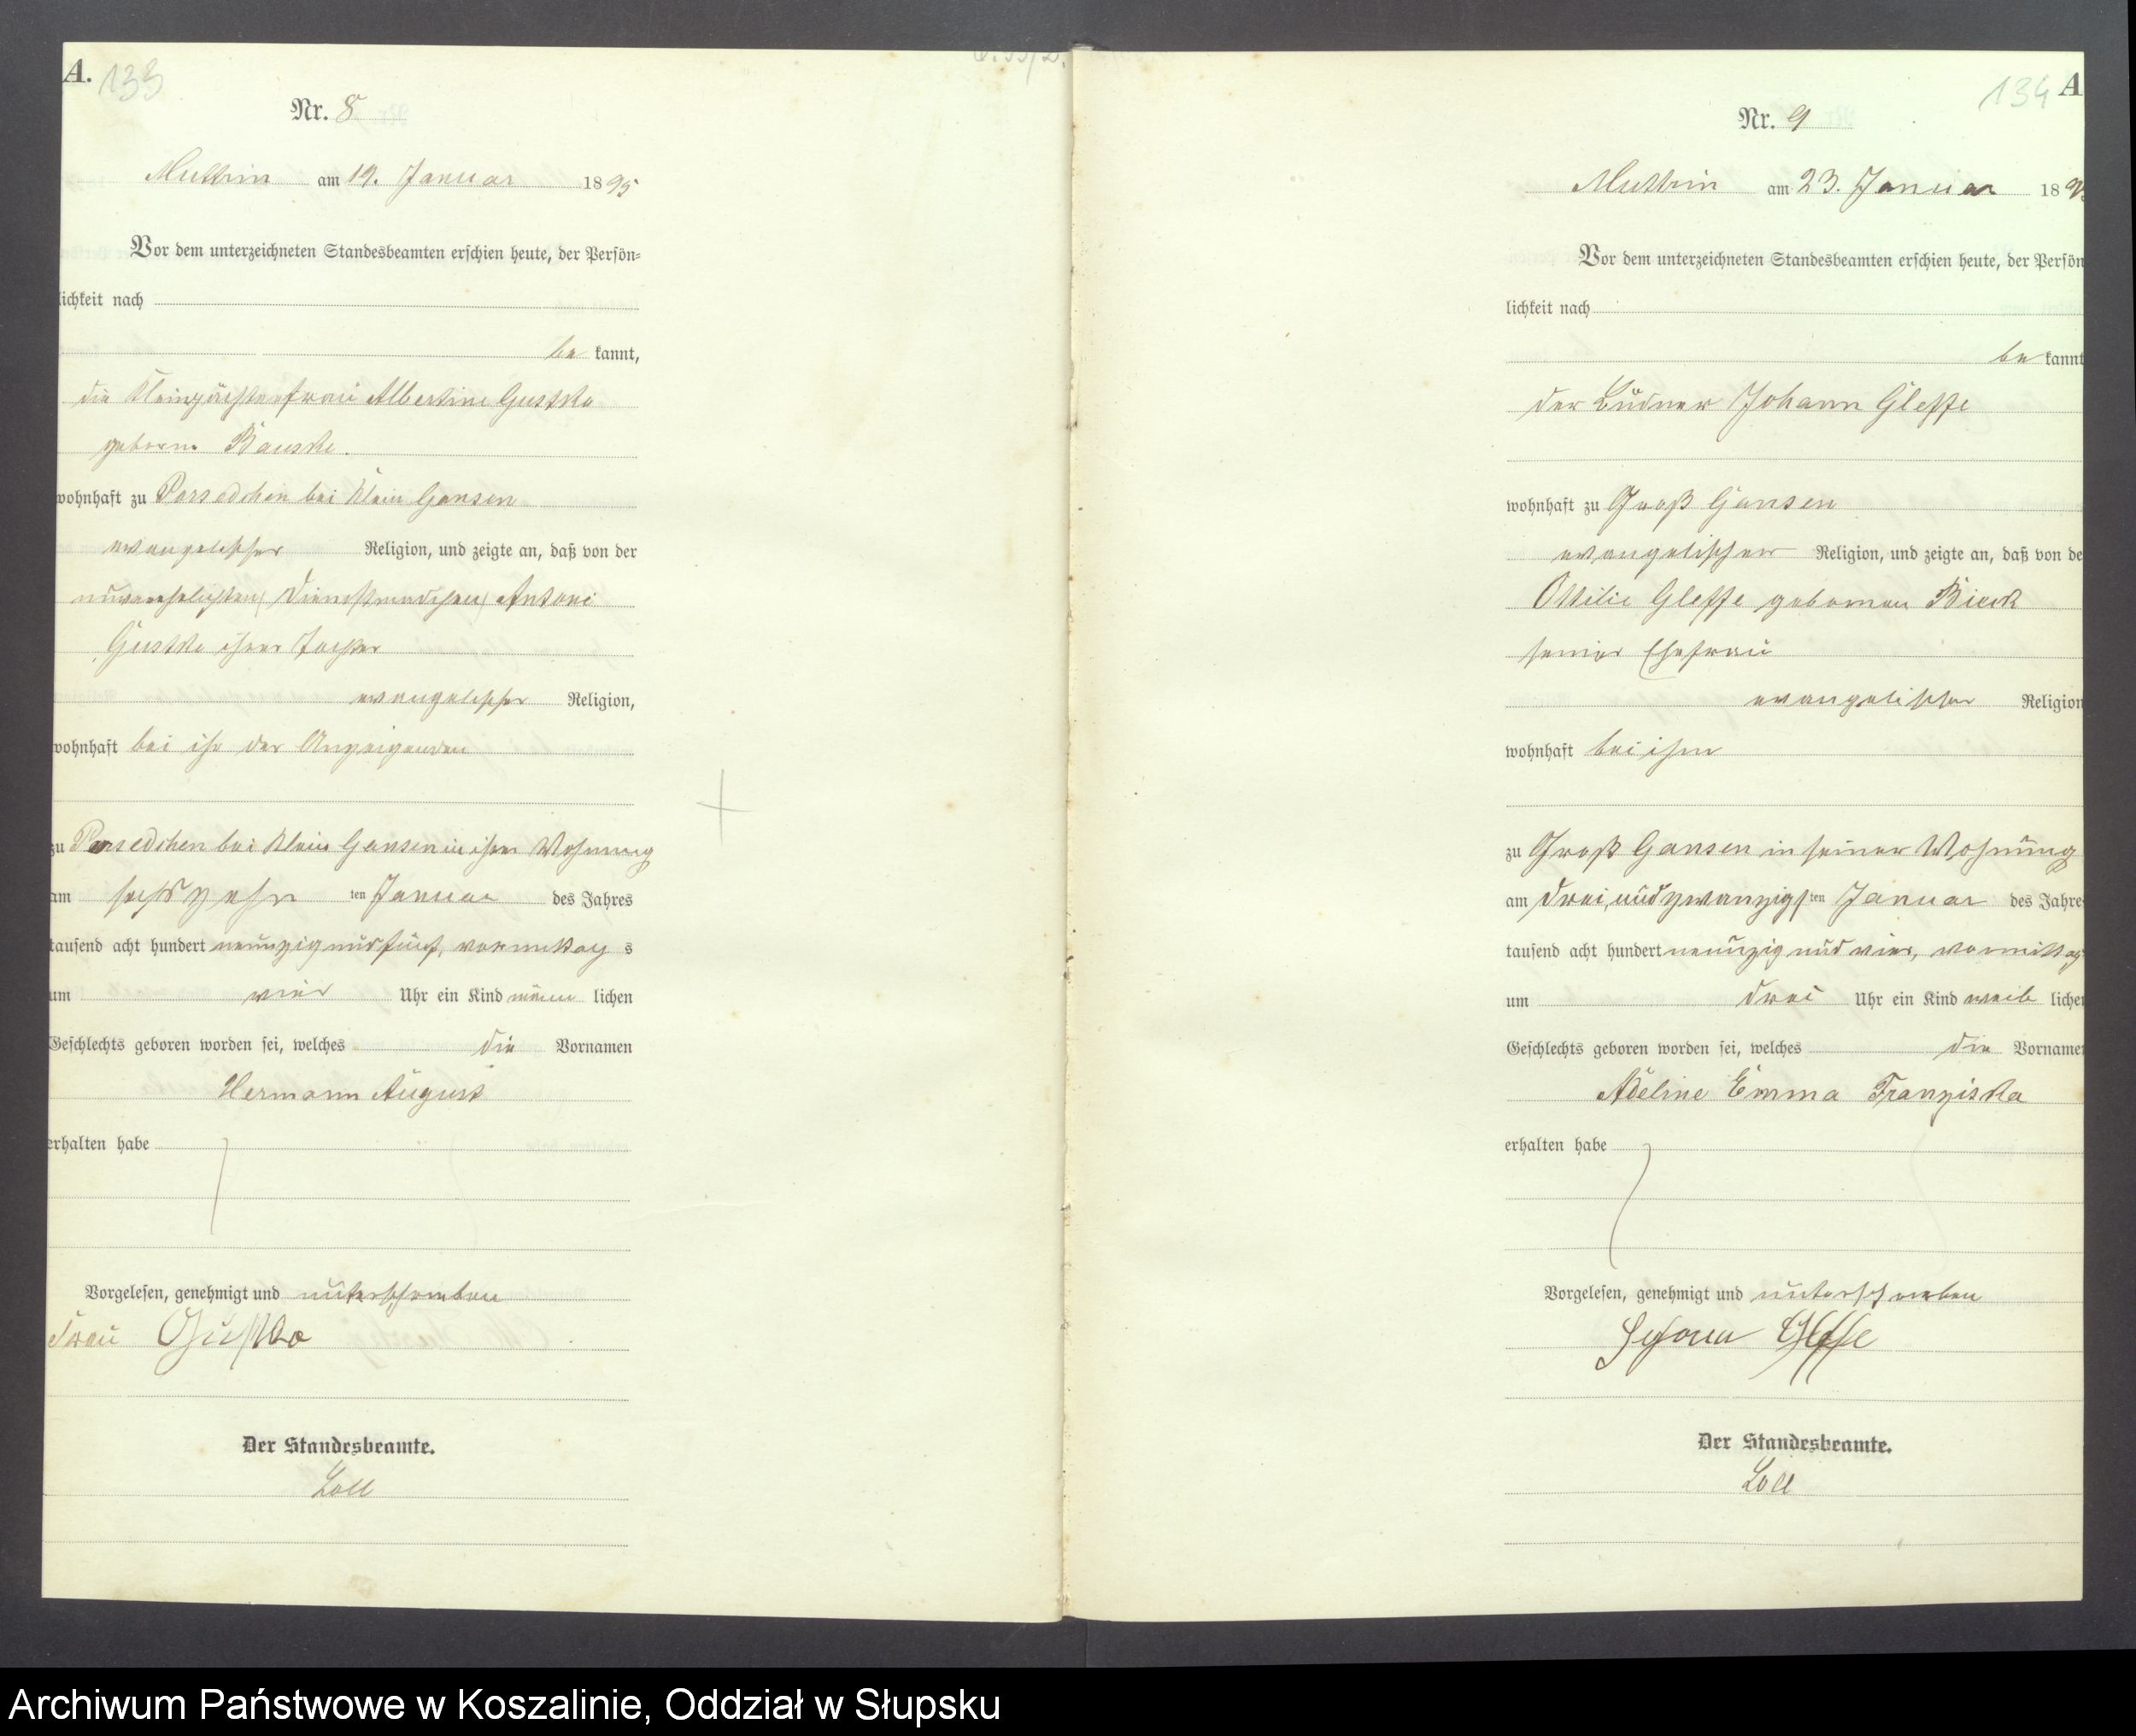 A. 133
Nr. 8
Muttrin am 19. Januar 1895
Vor dem unterzeichneten Standesbeamten erschien heute, der Persön-
lichkeit nach
be kannt,
die Kleinpächterfrau Albertine Gustke
geborne Bauske.
wohnhaft zu Porsedchen bei Klein Gansen
evangelischer Religion, und zeigte an, daß von der
unverehelichten Dienstmädchen
Gustke ihrer Tochter
evangelischer Religion,
wohnhaft bei ihr der Anzeigenden
zu Porsedchen bei Klein Gansen in ihrer Wohnung
am sechszehn ten Januar des Jahres
tausend acht hundert neunzig und fünf, vormittag s
um vier Uhr ein Kind männ lichen
Geschlechts geboren worden sei, welches die Vornamen
Hermann August
erhalten habe
Vorgelesen, genehmigt und unterschrieben
Frau Gustke
Der Standesbeamte.
Loll
134 A
Nr. 9
Muttrin am 23. Januar 189
Vor dem unterzeichneten Standesbeamten erschien heute, der Persön
lichkeit nach
be kannt
der Büdner Johann Gleffe
wohnhaft zu Groß Gansen
evangelischer Religion, und zeigte an, daß von de
Ottilie Gleffe gebornen Bieck
seiner Ehefrau
evangelischer Religion
wohnhaft bei ihm
zu Groß Gansen in seiner Wohnung
am drei und zwanzigs ten Januar des Jahre
tausend acht hundert neunzig und vier, vormittag
um drei Uhr ein Kind weib liche
Geschlechts geboren worden sei, welches die Vorname
Adeline Emma Franziska
erhalten habe
Vorgelesen, genehmigt und unterschrieben
Johann Gleffe
Der Standesbeamte.
Loll
Archiwum Państwowe w Koszalinie, Oddział w Słupsku